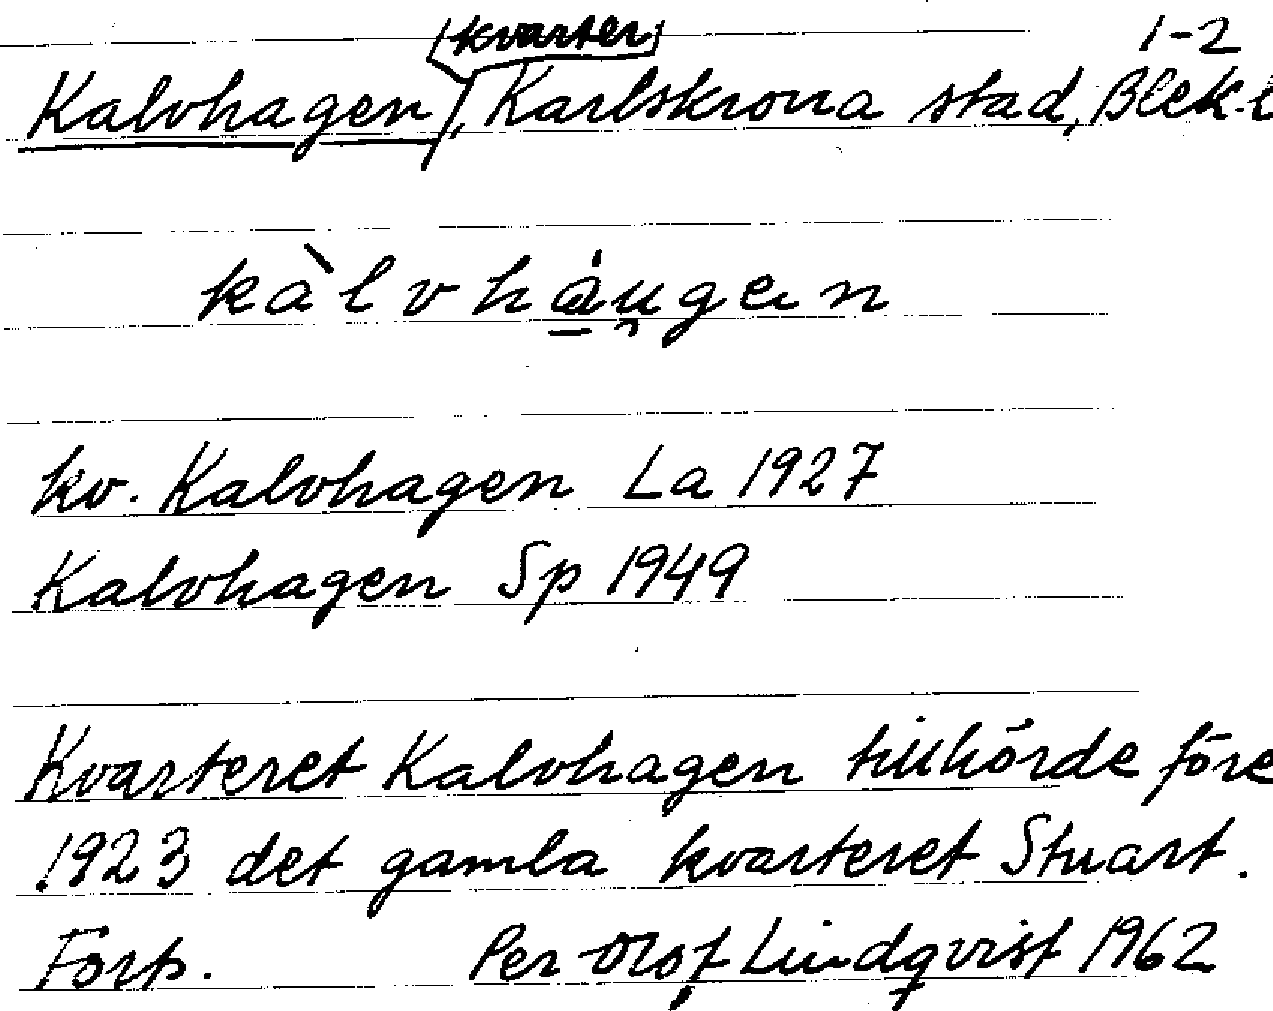 1-2
Kalvhagen, kvarter, Karlskrona stad, Blek.l
kàlvháu̯gen
kv. Kalvhagen La 1927
Kalvhagen Sp 1949
Kvarteret Kalvhagen tillhörde före
1923 det gamla kvarteret Stuart.
Forts. Per Olof Lindqvist 1962